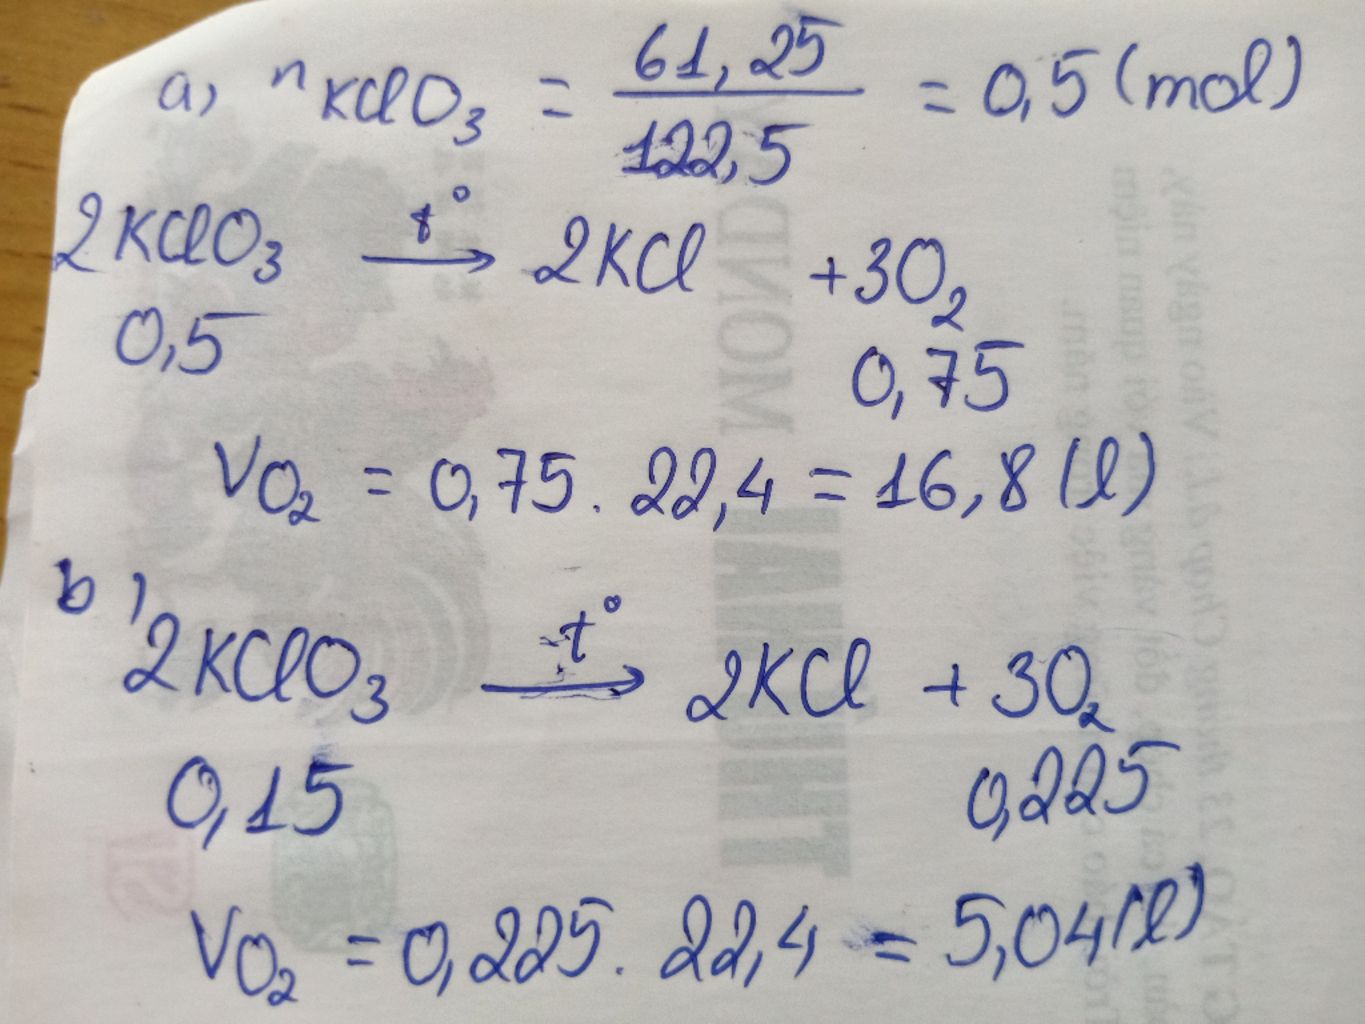 a, nKClO3 = 61,25 / 122,5 = 0,5 (mol)
2KClO3 t° → 2KCl + 3O2
0,5 0,75
VO2 = 0,75 . 22,4 = 16,8 (l)
b, 2KClO3 t° → 2KCl + 3O2
0,15 0,225
VO2 = 0,225 . 22,4 = 5,04 (l)
MONDAY